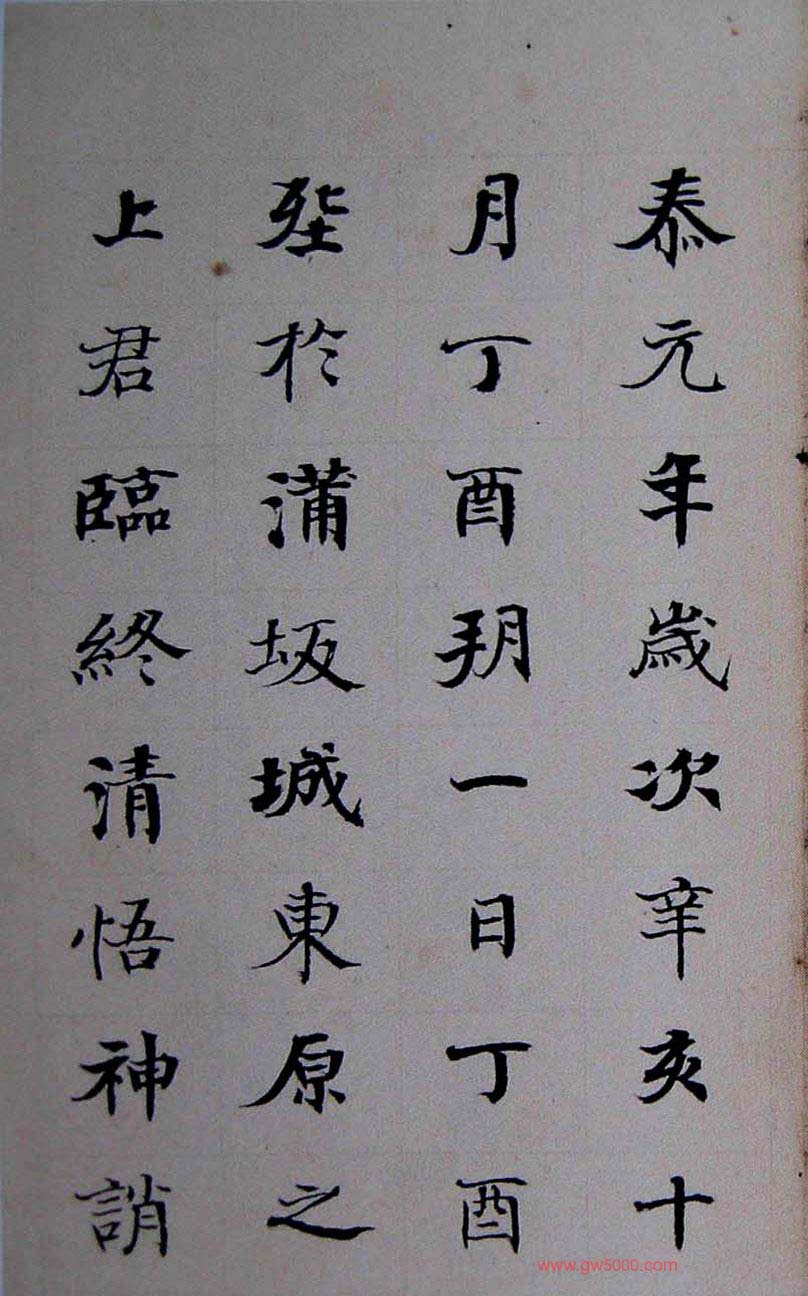 泰元年歲次辛亥十
月丁酉朔一日丁酉
塟於蒲坂城東原之
上君臨終清悟神誚
www.gw5000.com